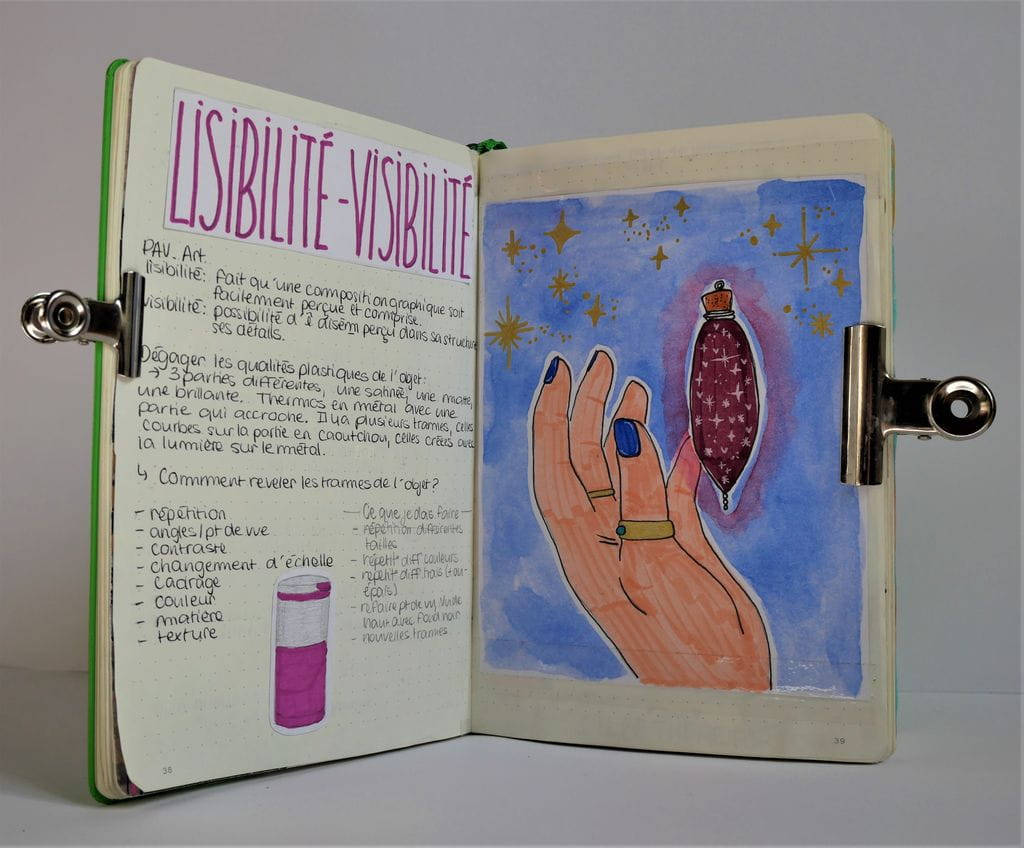 LISIBILITÉ-VISIBILITÉ
PAV. Art.
lisibilité: fait qu'une composition graphique soit
facilement perçue et comprise.
visibilité: possibilité d'ê disèm perçu dans sa structure
ses détails.
Dégager les qualités plastiques de l'objet:
→ 3 parties différentes, une satinée, une matte,
une brillante. Thermos en métal avec une
partie qui accroche. Il y a plusieurs trames, celles
courbes sur la partie en caoutchou, celles créées avec
la lumière sur le métal.
↳ Comment reveler les trames de l'objet?
- répétition
- angles/pt de vue
- contraste
- changement d'échelle
- cadrage
- couleur
- matière
- texture
- Ce que je dois faire -
- répétition différentes
tailles
- répétit diff couleurs
- répétit diff trais (+ou-
épais)
- refaire pt de vu vu de
haut avec fond noir
- nouvelles trames
38
39